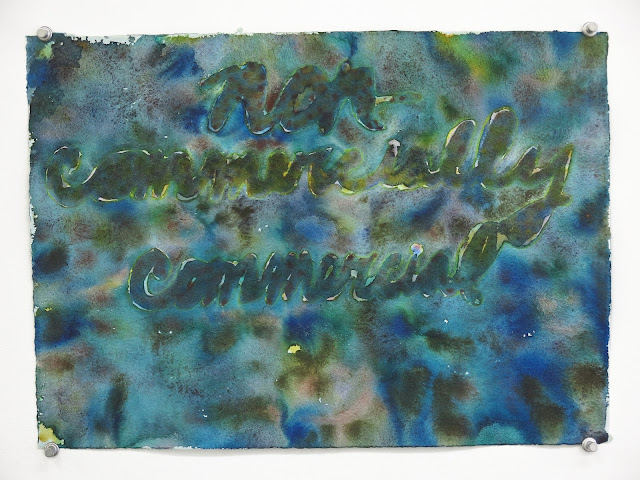 non
commercially
commercial